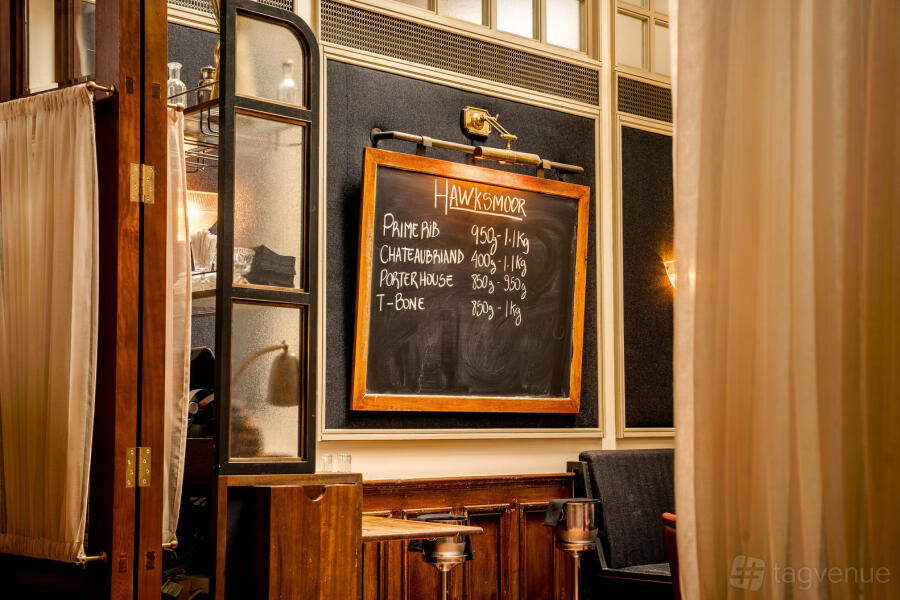 HAWKSMOOR
PRIME RIB 950g - 1.1Kg
CHATEAUBRIAND 400g - 1.1Kg
PORTERHOUSE 850g - 950g
T-BONE 850g - 1Kg
tagvenue